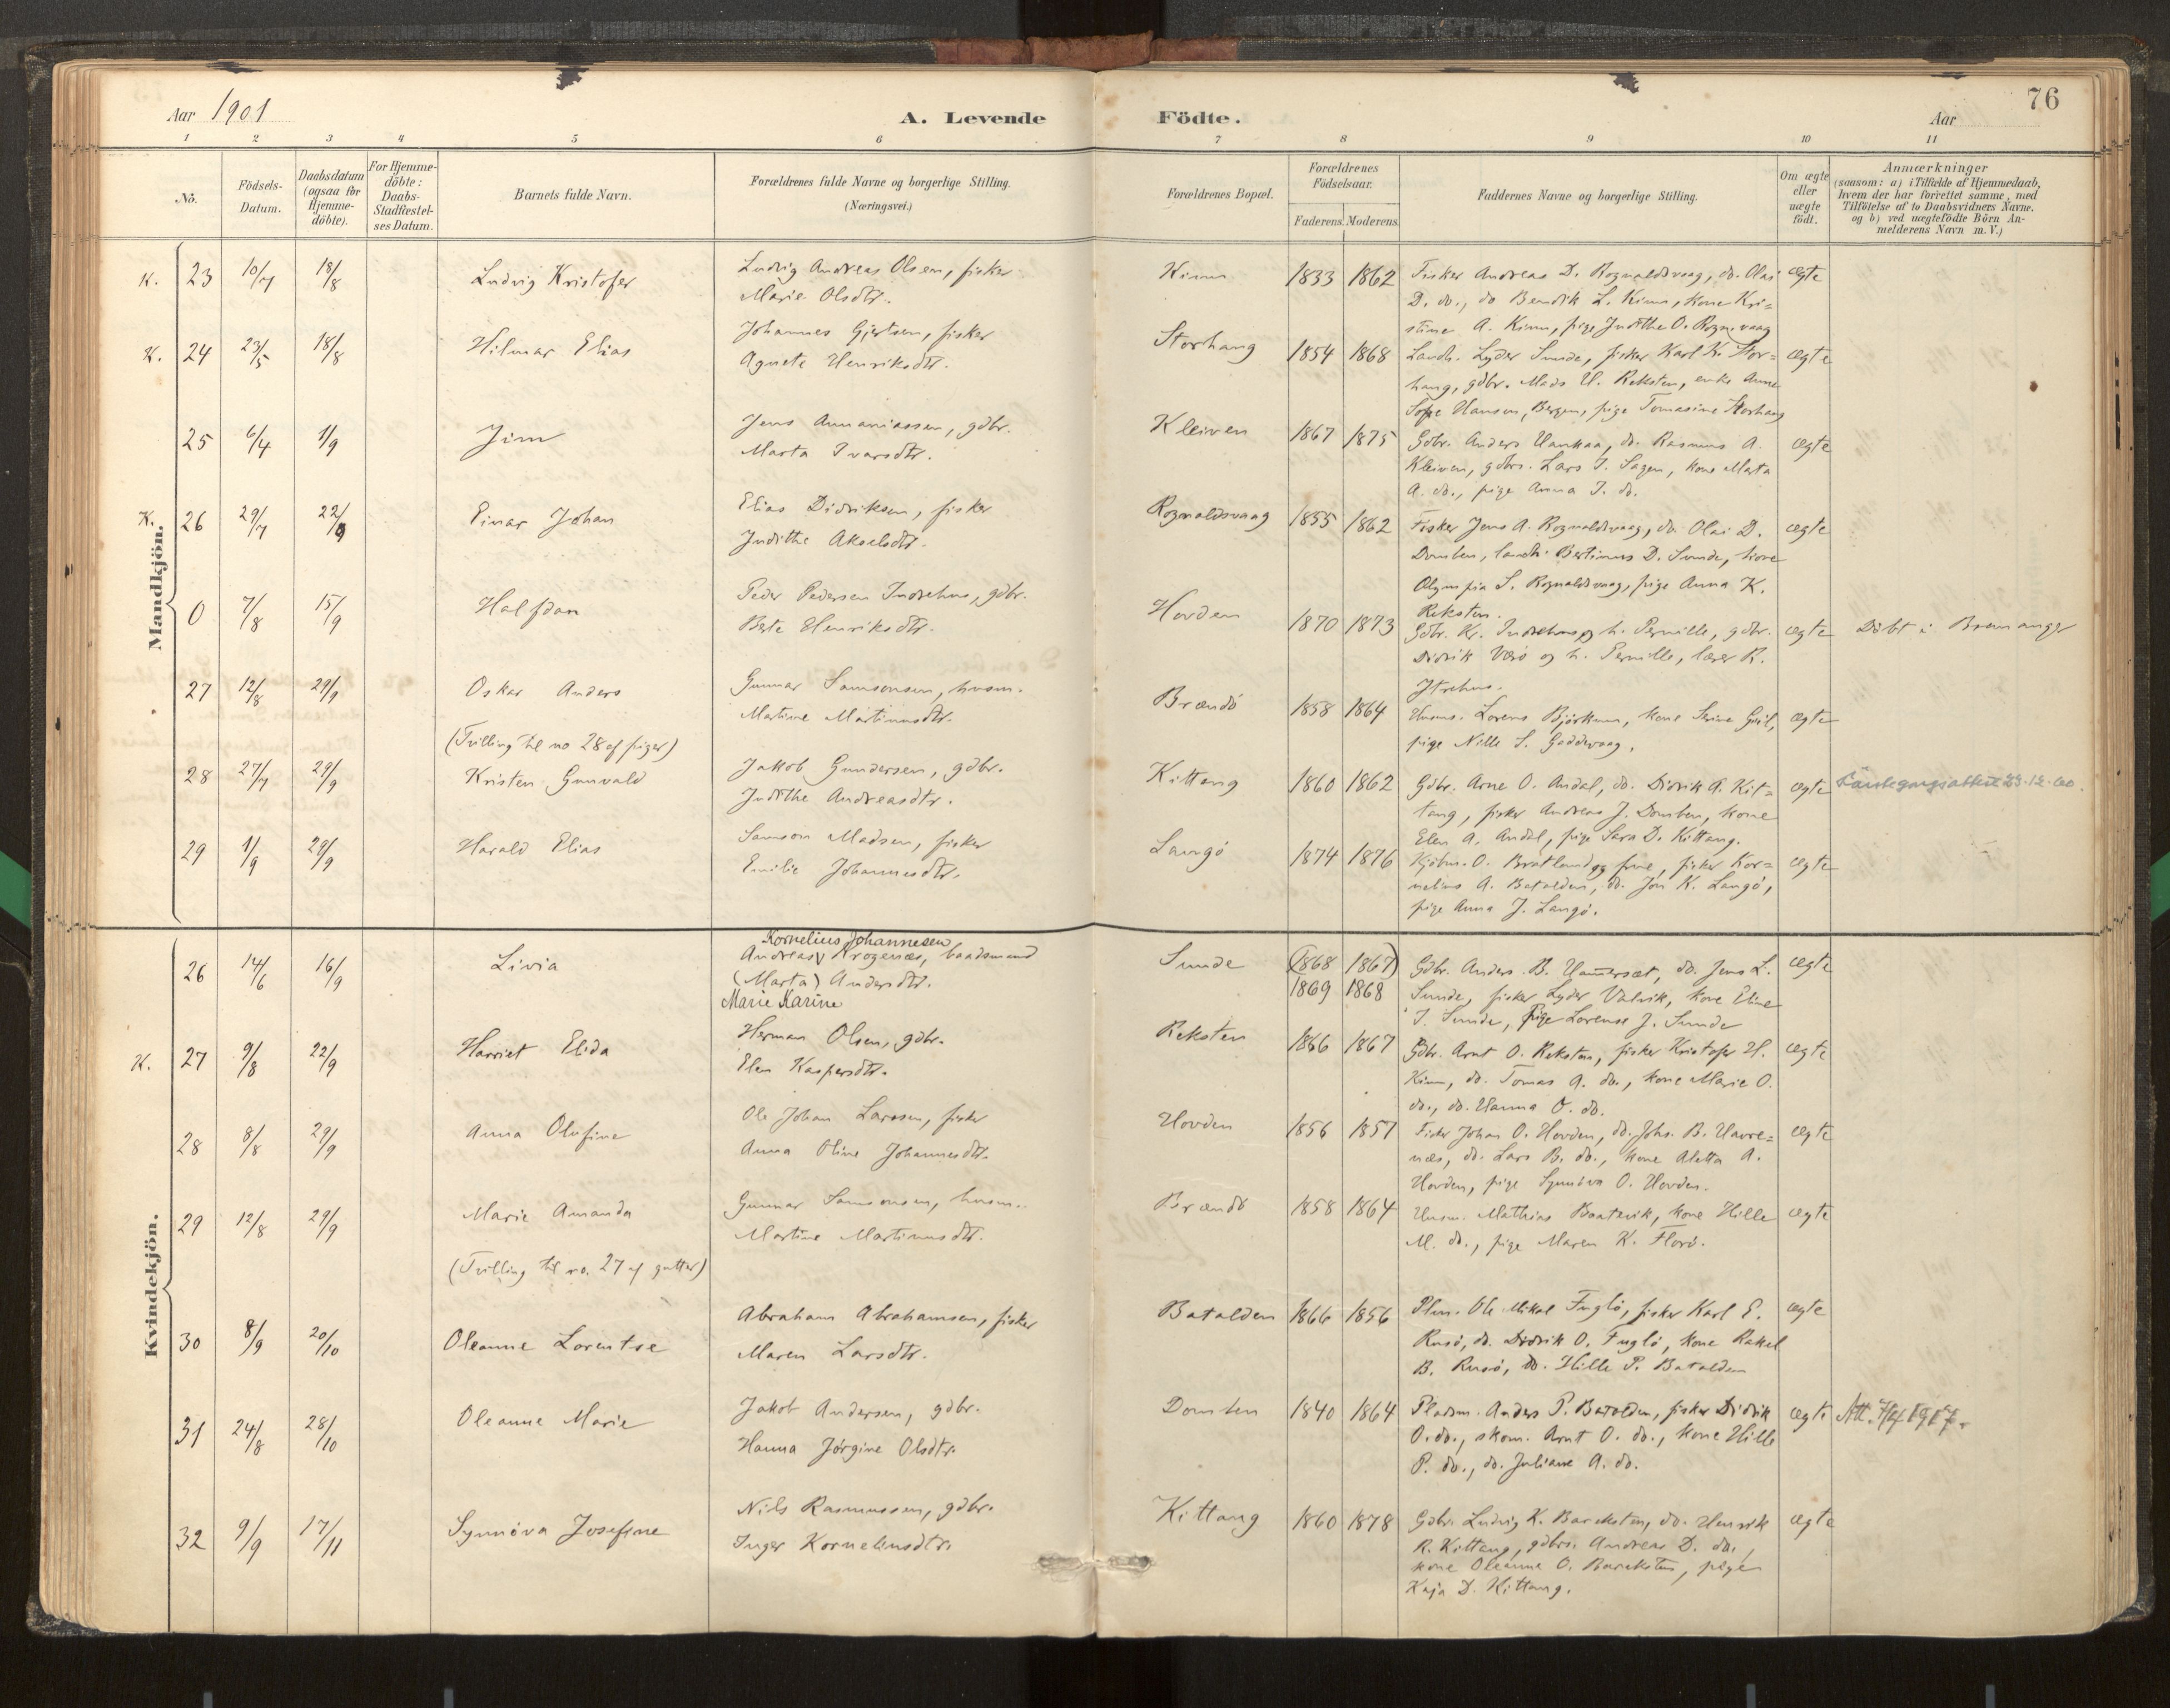 76
Aar 1901
A. Levende Födte.
Aar
1 2 3 4 5 6 7 8 9 10 11
No.
Födsels-
Datum.
Daabsdatum
(ogsaa for
Hjemme-
döbte).
For Hjemme-
döbte:
Daabs-
Stadfæstel-
ses Datum.
Barnets fulde Navn.
Forældrenes fulde Navne og borgerlige Stilling.
(Næringsvei.)
Forældrenes Bopæl.
Forældrenes
Födselsaar.
Faderens. Moderens.
Faddernes Navne og borgerlige Stilling.
Om ægte
eller
uægte
födt.
Anmærkninger
(saasom: a) i Tilfælde af Hjemmedaab,
hvem der har forrettet samme, med
Tilföielse af to Daabsvidners Navne,
og b) ved uægtefödte Börn An-
melderens Navn m.V.)
Mandkjön.
K. 23 10/7 18/8 Ludvig Kristofer
Ludvig Andreas Olsen, fisker
Marie Olsdtr.
Kinn 1833 1862
Fisker Andreas D. Rognaldsvaag, do. Olai
D. do., do Bendik L. Kinn, kone Kri=
stine A. Kinn, pige Judithe O. Rogn.vaag
ægte
K. 24 23/5 18/8 Hilmar Elias
Johannes Gjertsen, fisker
Agnete Henriksdtr.
Storhaug 1854 1868
Landh. Lyder Sunde, fisker Karl K. Stor=
haug, gdbr. Mads H. Reksten, enke Anne
Sofie Hansen, Bergen, pige Tomasine Storhaug
ægte
25 6/4 1/9 Jim
Jens Annaniassen, gdbr.
Marta Ivarsdtr.
Kleiven 1867 1875
Gdbr. Anders Haukaa, do. Rasmus A.
Kleiven, gdbrs. Lars J. Sagen, kone Marta
A. do., pige Anna J. do.
ægte
K. 26 29/7 22/9 Einar Johan
Elias Didriksen, fisker
Judithe Akselsdtr.
Rognaldsvaag 1855 1862
Fisker Jens A. Rognaldsvaag, do. Olai D.
Domben, landh. Bertinus D. Sunde, kone
Olympia S. Rognaldsvaag, pige Anna K.
Reksten.
ægte
0 7/8 15/9 Halfdan
Peder Pedersen Indrehus, gdbr.
Berte Henriksdtr.
Hovden 1870 1873
Gdbr. Kr. Indrehus og h. Pernille, gdbr.
Didrik Værö og h. Pernille, lærer R.
Ytrehus.
ægte
Döbt i Bremanger
27 12/8 29/9 Oskar Anders
(Tvilling til no 28 af piger)
Gunnar Samsonsen, husm.
Martine Martinusdtr.
Brandö 1858 1864
Husm. Lorens Björkum, kone Serine
pige Nille S. Goddevaag.
ægte
28 27/7 29/9 Kristen Gunvald
Jakob Gundersen, gdbr.
Judithe Andreasdtr.
Kittang 1860 1862
Gdbr. Arne O. Andal, do. Didrik A. Kit=
tang, fisker Andreas J. Domben, kone
Elen A. Andal, pige Sara D. Kittang.
ægte
29 1/9 29/9 Harald Elias
Samson Madsen, fisker
Emilie Johannesdtr.
Langö 1874 1876
Kjöbm. O. Bratland og frue, fisker Kor=
nelius A. Batalden, do. Jon K. Langö,
pige Anna J. Langö.
ægte
Kvindekjön.
26 14/6 16/9 Livia
Kornelius Johannesen
Andreas Krogenæs, baadsmand
(Marta) Andersdtr.
Marie Karine
Sunde (1868 1867)
1869 1868
Gdbr. Anders B. Hamersæt, do. Jens L.
Sunde, fisker Lyder Valvik, kone Eline
J. Sunde, pige Lorense J. Sunde
ægte
K. 27 9/8 22/9 Harriet Elida
Herman Olsen, gdbr.
Elen Kaspersdtr.
Reksten 1866 1867
Gdbr. Arnt O. Reksten, fisker Kristofer H.
Kinn, do. Tomas A. do., kone Marie O.
do., do. Hanna O. do.
ægte
28 8/8 29/9 Anna Olufine
Ole Johan Larssen, fisker
Anna Oline Johannesdtr.
Hovden 1856 1857
Fisker Johan O. Hovden, do. Johs. B. Havre=
næs, do. Lars B. do., kone Aletta A.
Hovden, pige Synnöva O. Hovden.
ægte
29 12/8 29/9 Marie Amanda
(Tvilling til no. 27 af gutter)
Gunnar Samsonsen, husm.
Martine Martinusdtr.
Brandö 1858 1864
Husm. Mathias Baatevik, kone Hille
M. do., pige Maren K. Florö.
ægte
30 8/9 20/10 Oleanne Lorentse
Abraham Abrahamsen, fisker
Maren Larsdtr.
Batalden 1866 1856
Plm. Ole Mikal Fuglö, fisker Karl E.
Rusö, do. Didrik O. Fuglö, kone Rakel
B. Rusö, do. Hille P. Batalden
ægte
31 24/8 28/10 Oleanne Marie
Jakob Andersen, gdbr.
Hanna Jörgine Olsdtr.
Domben 1840 1864
Pladsm. Anders P. Batalden, fisker Didrik
O. do., skom. Arnt O. do., kone Hille
P. do., do. Juliane A. do.
ægte
Att. 7/4 1917.
32 9/9 17/11 Synnöva Josefine
Nils Rasmussen, gdbr.
Inger Kornelinsdtr.
Kittang 1860 1878
Gdbr. Ludvig K. Bareksten, do. Henrik
R. Kittang, gdbrs. Andreas D. do.,
kone Oleanne O. Bareksten, pige
Kaja D. Kittang.
ægte